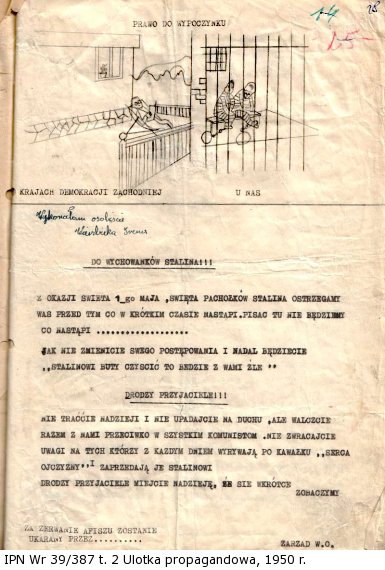 14
25
15
PRAWO DO WYPOCZYNKU
KRAJACH DEMOKRACJI ZACHODNIEJ
U NAS
Wykonałam osobiście
Irena
DO WYCHOWANKÓW STALINA!!!
Z OKAZJI SWIETA 1_go MAJA ,SWIĘTA PACHOŁKÓW STALINA OSTRZEGAMY
WAS PRZED TYM CO W KRÓTKIM CZASIE NASTĄPI.PISAC TU NIE BĘDZIEMY
CO NASTĄPI ...................
JAK NIE ZMIENICIE SWEGO POSTĘPOWANIA I NADAL BĘDZIECIE
,,STALINOWI BUTY CZYSCIC TO BEDZIE Z WAMI ZLE "
DRODZY PRZYJACIELE!!!
NIE TRAĆCIE NADZIEJI I NIE UPADAJCIE NA DUCHU ,ALE WALCZCIE
RAZEM Z NAMI PRZECIWKO W SZYSTKIM KOMUNISTOM .NIE ZWRACAJCIE
UWAGI NA TYCH KTÓRZY Z KAZDYM DNIEM WYRYWAJĄ PO KAWAŁKU ,,SERCA
OJCZYZNY" I ZAPRZEDAJĄ JE STALINOWI
DRODZY PRZYJACIELE MIEJCIE NADZIEJĘ, ŻE SIE WKRÓTCE
ZOBACZYMY
ZA ZERWANIE AFISZU ZOSTANIE
UKARANY PRZEZ..........
ZARZAD W.O.
IPN Wr 39/387 t. 2 Ulotka propagandowa, 1950 r.